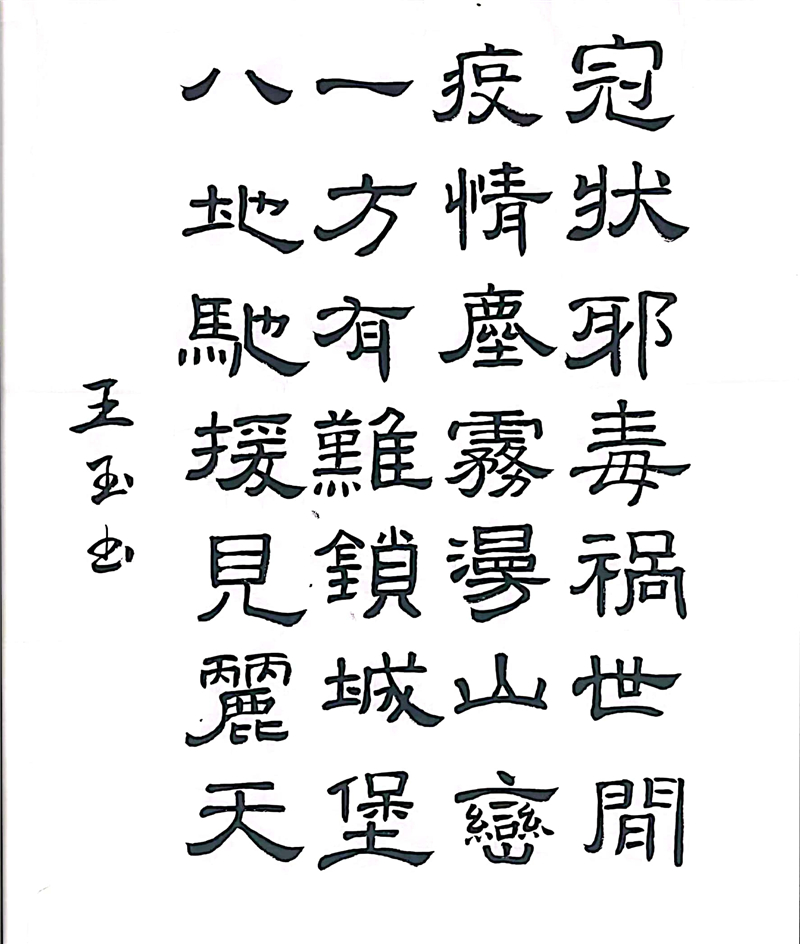 冠狀耶毒禍世間
疫情塵霧漫山巒
一方有難鎖城堡
八地馳援見麗天
王玉书